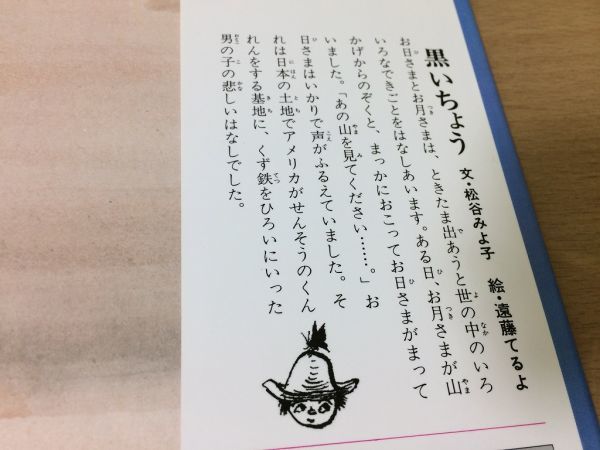 黒いちょう
文・松谷みよ子　絵・遠藤てるよ
お日さまとお月さまは、ときたま出あうと世の中のいろ
いろなできごとをはなしあいます。ある日、お月さまが山
かげからのぞくと、まっかにおこってお日さまがまって
いました。「あの山を見てください……。」お
日さまはいかりで声がふるえていました。そ
れは日本の土地でアメリカがせんそうのくん
れんをする基地に、くず鉄をひろいにいった
男の子の悲しいはなしでした。